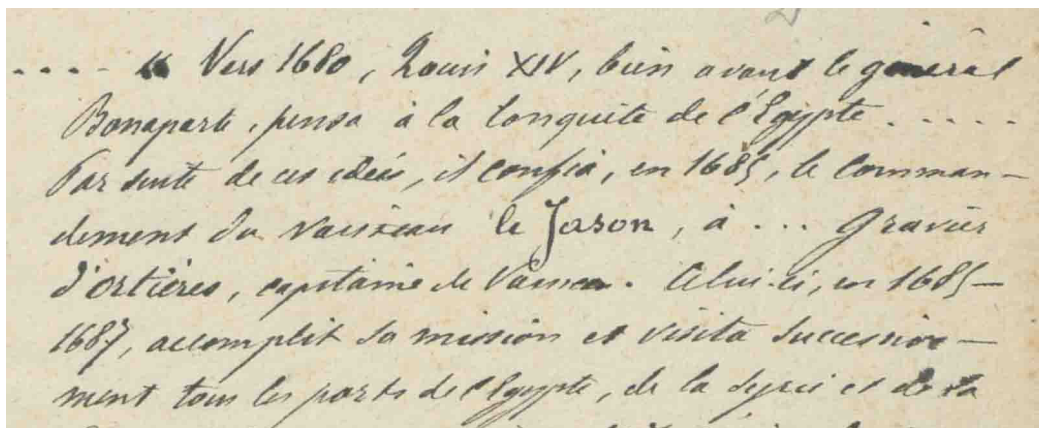 .... « Vers 1680, Louis XIV, bien avant le général
Bonaparte, pensa à la conquête de l'Egypte .....
Par suite de ces idées, il confia, en 1685, le comman-
dement du vaisseau le Jason, à ... Gravier
d'Ortières, capitaine de Vaisseau. Celui-ci, en 1685-
1687, accomplit sa mission et visita successive-
ment tous les ports de l'Egypte, de la Syrie et de la